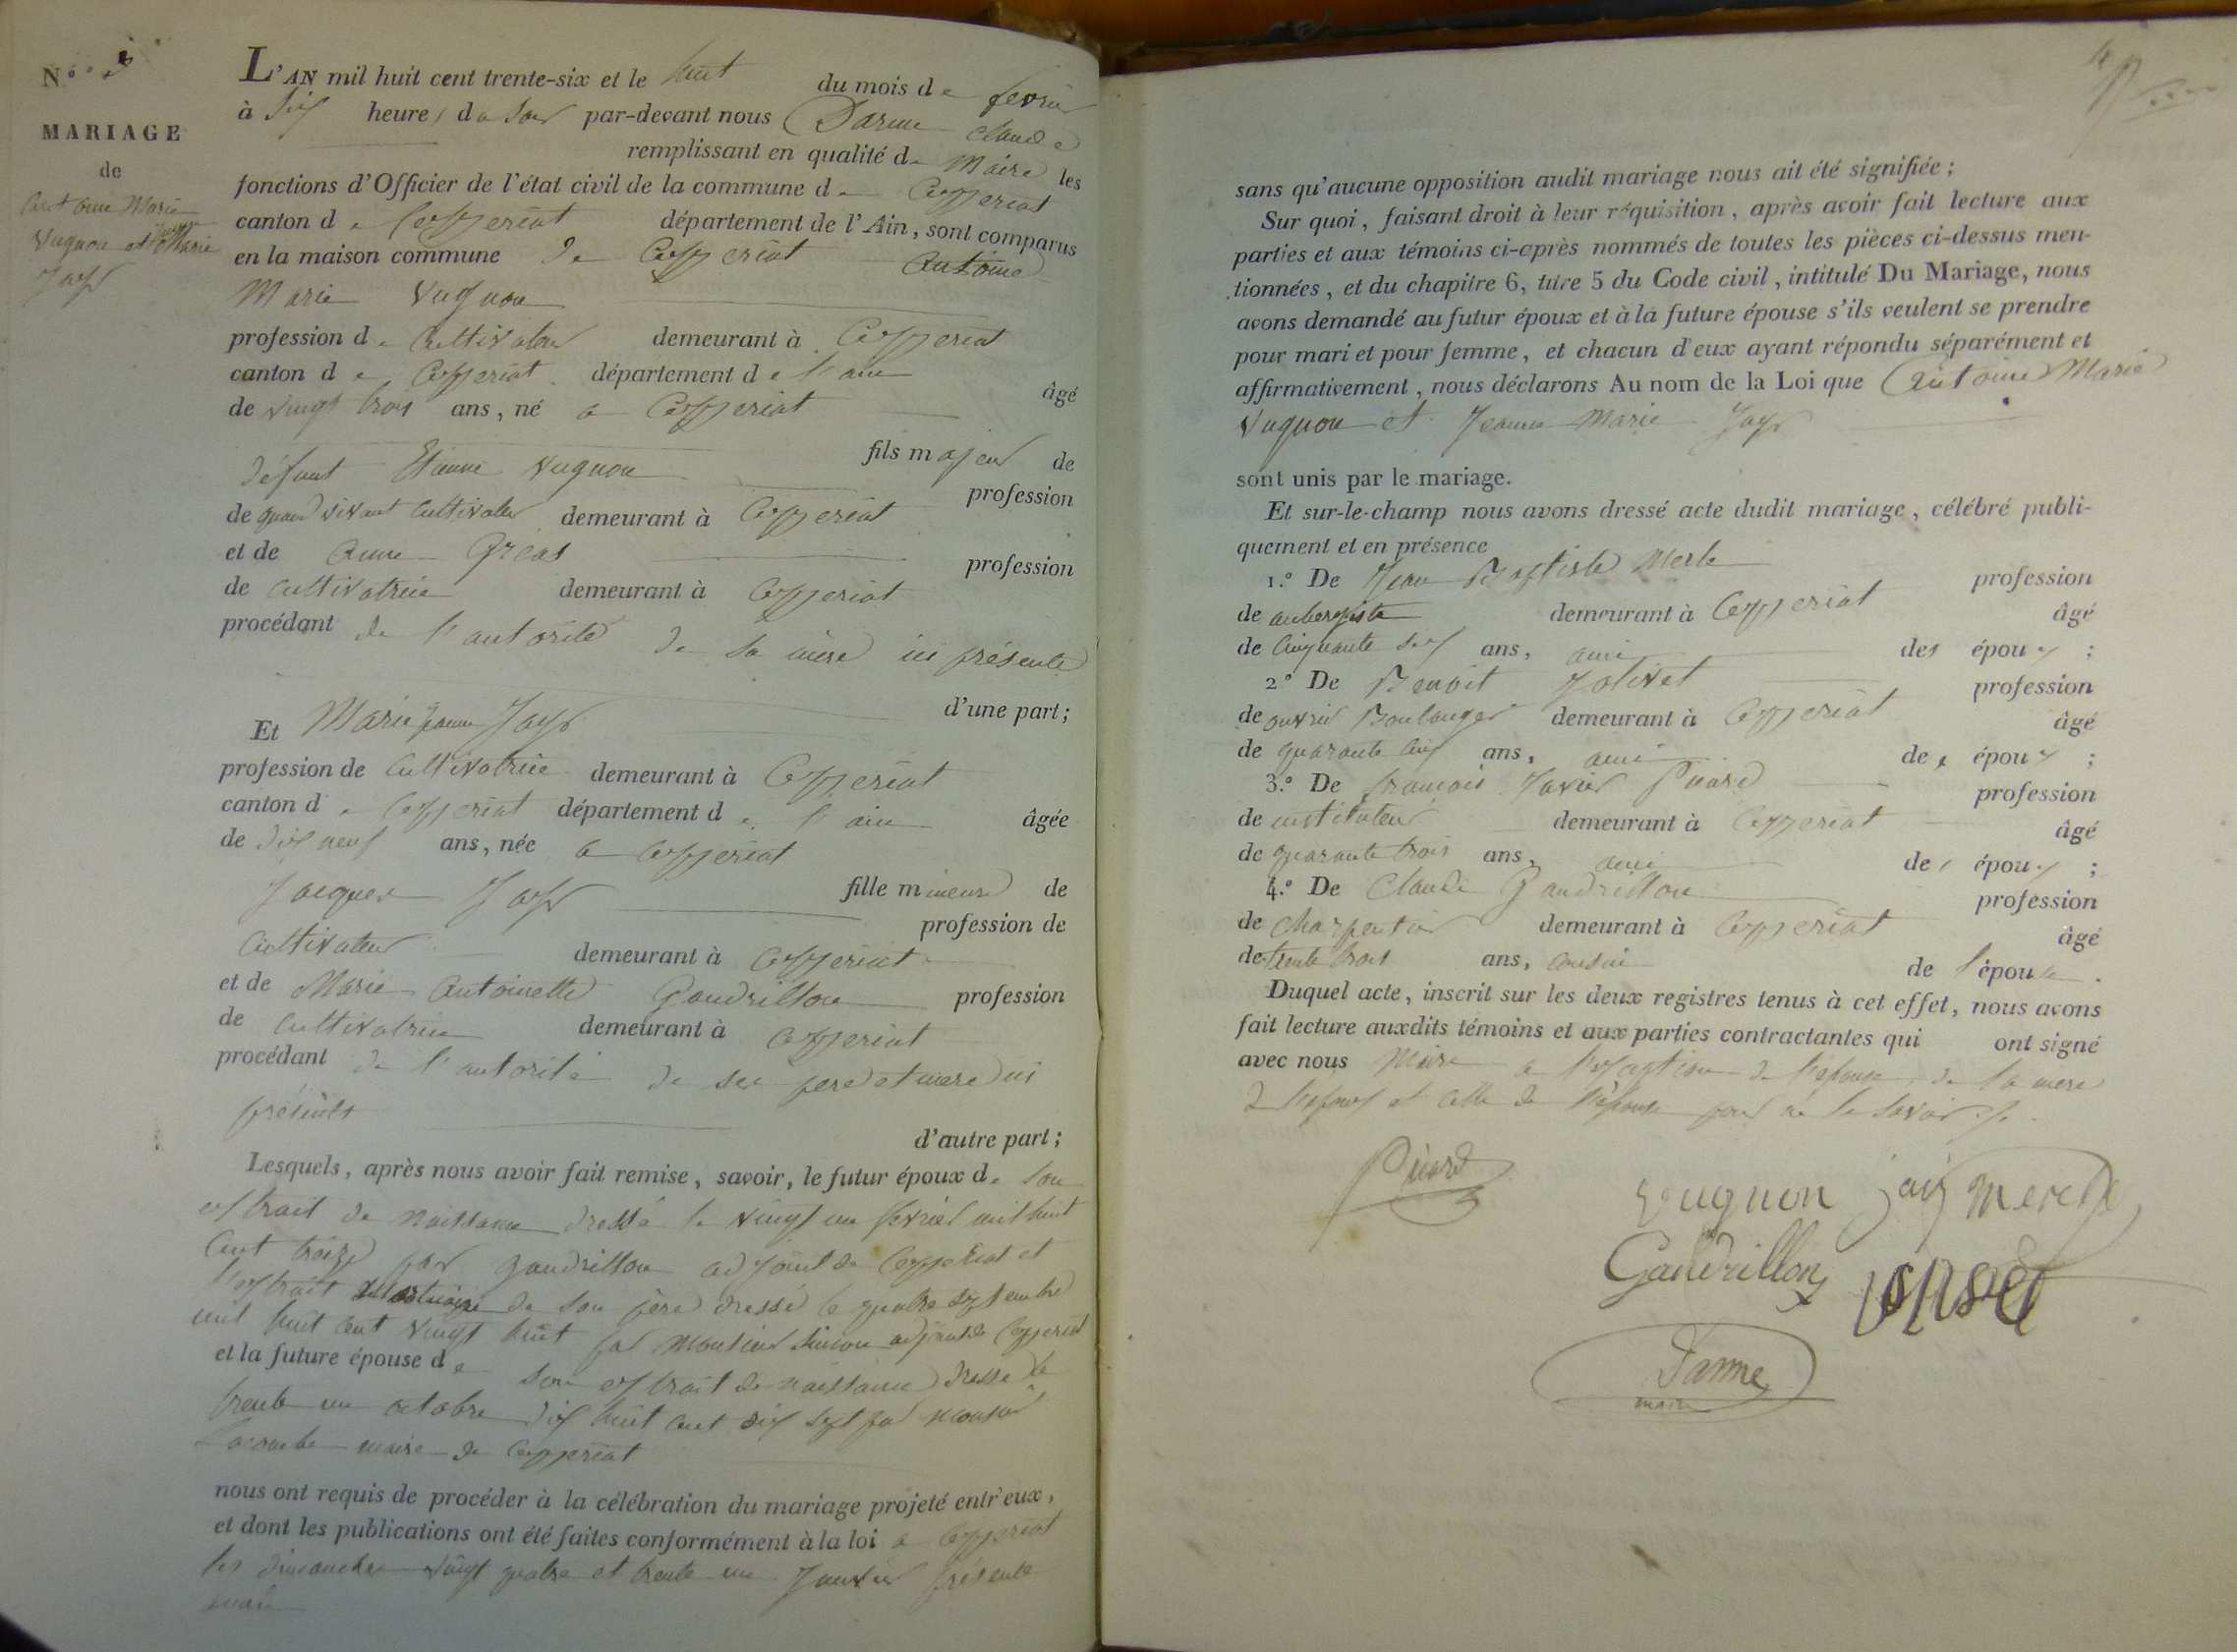 N.º
MARIAGE
de
Antoine Marie
Vugnon et Jeanne Marie
Jayr
L'AN mil huit cent trente-six et le huit du mois de fevrier
à six heures du soir par-devant nous Darme Claude
remplissant en qualité de Maire les
fonctions d'Officier de l'état civil de la commune de Ceyzeriat
canton de Ceyzeriat département de l'Ain, sont comparus
en la maison commune de Ceyzeriat Antoine
Marie Vugnon
profession de Cultivateur demeurant à Ceyzeriat
canton de Ceyzeriat département de l'ain âgé
de vingt trois ans, né a Ceyzeriat
fils majeur de
défunt Etienne Vugnon profession
de quand vivant Cultivateur demeurant à Ceyzeriat
et de Anne Greas profession
de cultivatrice demeurant à Ceyzeriat
procédant de l'autorité de sa mère ici présente
d'une part;
Et Marie Jeanne Jayr
profession de Cultivatrice demeurant à Ceyzeriat
canton de Ceyzeriat département de l'ain âgée
de dix neuf ans, née a Ceyzeriat
fille mineure de
Jacques Jayr profession de
Cultivateur demeurant à Ceyzeriat
et de Marie Antoinette Gaudrillon profession
de Cultivatrice demeurant à Ceyzeriat
procédant de l'autorité de ses pere et mere ici
présents
d'autre part;
Lesquels, après nous avoir fait remise, savoir, le futur époux de son
extrait de naissance dressé le vingt un fevrier mil huit
Cent treize par Gaudrillon adjoint de Ceyzeriat et
l'extrait mortuaire de son père dressé le quatre septembre
mil huit cent vingt huit par Monsieur Simon adjoint de Ceyzeriat
et la future épouse de son extrait de naissance dressé le
trente un octobre dix huit cent dix sept par monsieur
Lacombe maire de Ceyzeriat
nous ont requis de procéder à la célébration du mariage projeté entr'eux,
et dont les publications ont été faites conformément à la loi a Ceyzeriat
les dimanches vingt quatre et trente un Janvier présente
année
sans qu'aucune opposition audit mariage nous ait été signifiée;
Sur quoi, faisant droit à leur réquisition, après avoir fait lecture aux
parties et aux témoins ci-après nommés de toutes les pièces ci-dessus men-
tionnées, et du chapitre 6, titre 5 du Code civil, intitulé Du Mariage, nous
avons demandé au futur époux et à la future épouse s'ils veulent se prendre
pour mari et pour femme, et chacun d'eux ayant répondu séparément et
affirmativement, nous déclarons Au nom de la Loi que Antoine Marie
Vugnon et Jeanne Marie Jayr
sont unis par le mariage.
Et sur-le-champ nous avons dressé acte dudit mariage, célébré publi-
quement et en présence
1.º De Jean Baptiste Merle profession
de aubergiste demeurant à Ceyzeriat âgé
de Cinquante six ans, ami des époux;
2º De Benoit Jolivet profession
de ouvrier Boulanger demeurant à Ceyzeriat âgé
de quarante cinq ans, ami des époux;
3.º De françois Xavier Picard profession
de instituteur demeurant à Ceyzeriat âgé
de quarante trois ans, ami des époux;
4.º De Claude Gaudrillon profession
de Charpentier demeurant à Ceyzeriat âgé
de trente trois ans, cousin de l'épouse.
Duquel acte, inscrit sur les deux registres tenus à cet effet, nous avons
fait lecture auxdits témoins et aux parties contractantes qui ont signé
avec nous Maire a l'exception de l'épouse, de la mere
de l'epoux et celle de l'épouse pour ne le savoir
Picard
Vugnon jayr merle
Gaudrillon
Darme
maire